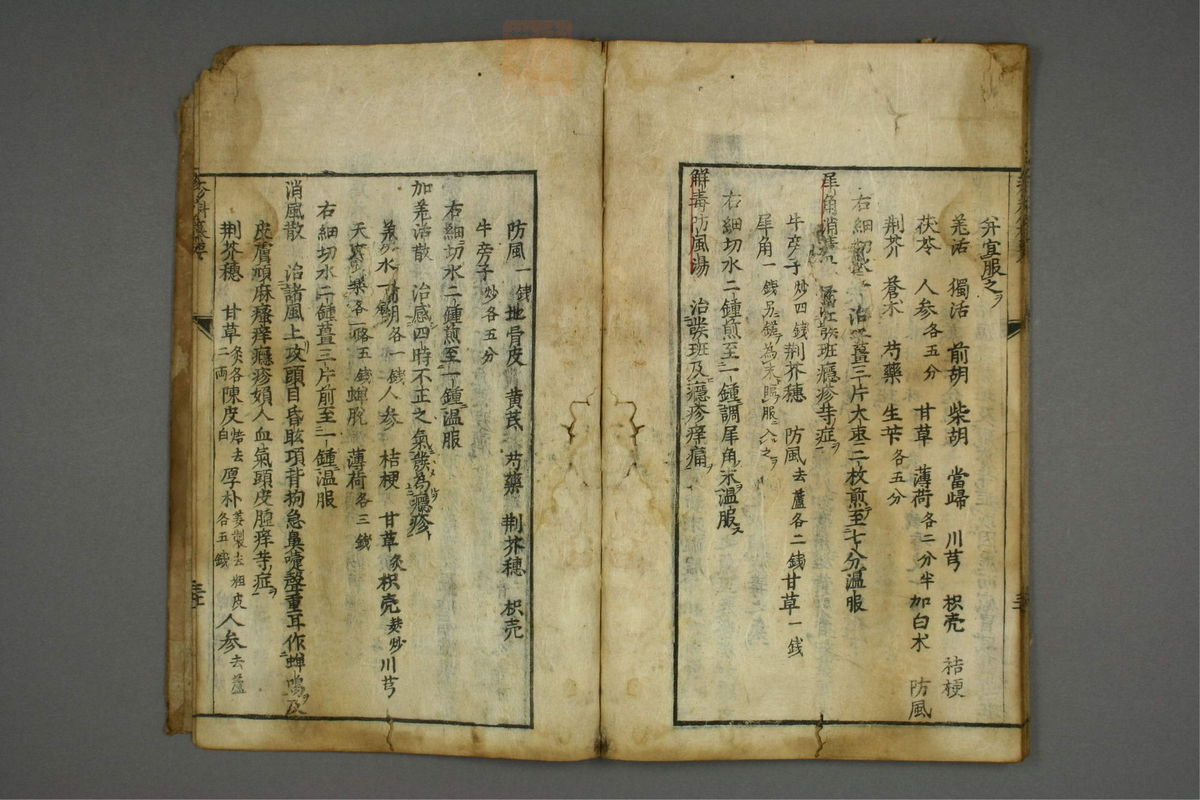 弁宜服之ヲ
羌活　獨活　前胡　柴胡　當歸　川芎　枳壳　桔梗
茯苓　人参各五分　甘草　薄荷各二分半　加白朮　防風
荆芥　蒼朮　芍藥　生芐各五分
右細切水　薑三片大枣二枚煎至七分温服
犀角消毒　班癮疹等症
牛旁子炒四錢荆芥穗　防風去蘆各二錢甘草一錢
犀角一錢另鎊為末臨服入之
右細切水二鍾煎至一鍾調犀角末温服
解毒防風湯　治發班及癮疹痒痛
防風一錢地骨皮　黄芪　芍藥　荆芥穗　枳壳
牛旁子炒各五分
右細切水二鍾煎至一鍾温服
加羌活散　治感四時不正之氣發為癮疹
羌　前胡各一錢人参　桔梗　甘草炙枳壳麸炒川芎
天麻　各五錢蝉脫　薄荷各三錢
右細切水二鍾薑三片煎至一鍾温服
消風散　治諸風上攻頭目昏眩項背拘急鼻嚏聲重耳作蝉鳴及
皮膚頑麻瘙痒癮疹婦人血氣頭皮腫痒等症
荆芥穗　甘草炙各二両陳皮焙去白厚朴姜製去粗皮各五錢人参去蘆